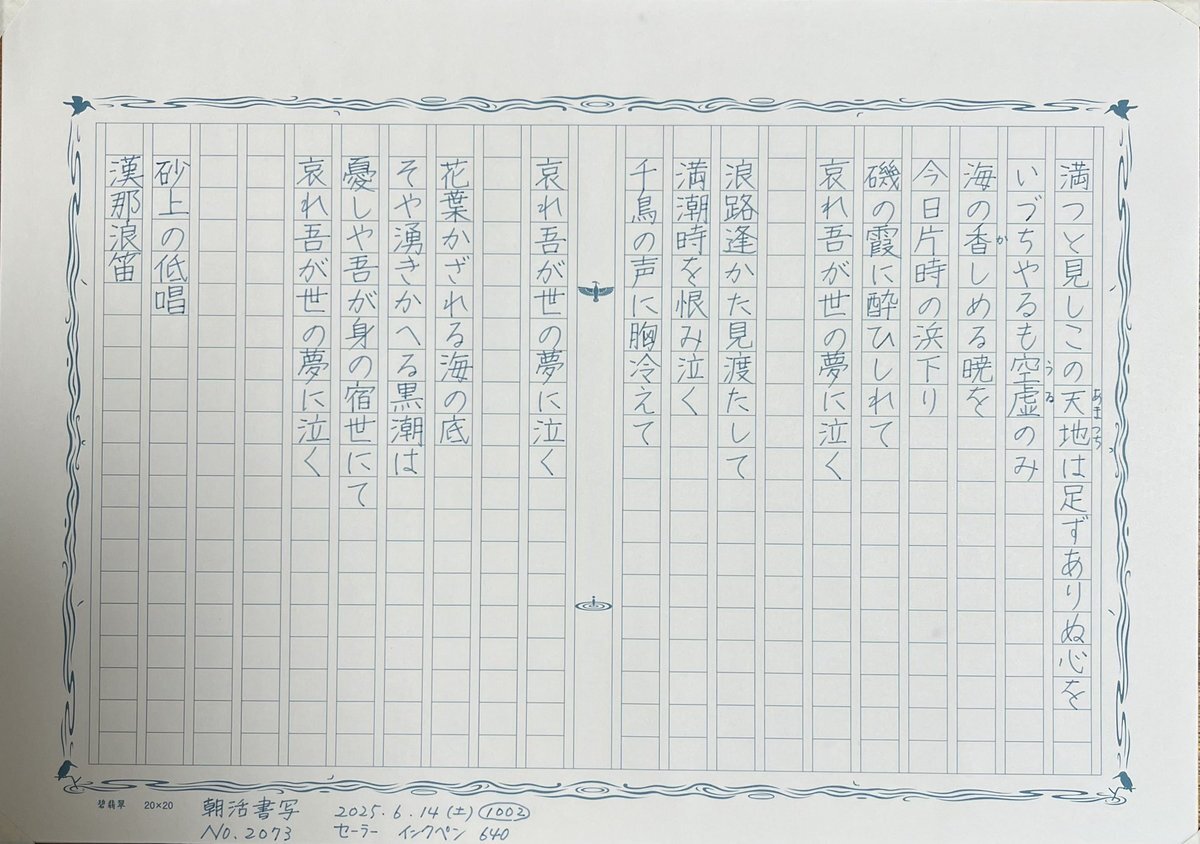 満つと見しこの天地は足ずありぬ心を
あまつち
いづちやるも空虚のみ
うろ
海の香しめる暁を
か
今日片時の浜下り
磯の霞に酔ひしれて
哀れ吾が世の夢に泣く
浪路逢かた見渡たして
満潮時を恨み泣く
千鳥の声に胸冷えて
哀れ吾が世の夢に泣く
花葉かざれる海の底
そや湧きかへる黒潮は
憂しや吾が身の宿世にて
哀れ吾が世の夢に泣く
砂上の低唱
漢那浪笛
碧翡翠 20×20
朝活書写 2025.6.14(土) 1002
No.2073 セーラー インクペン 640